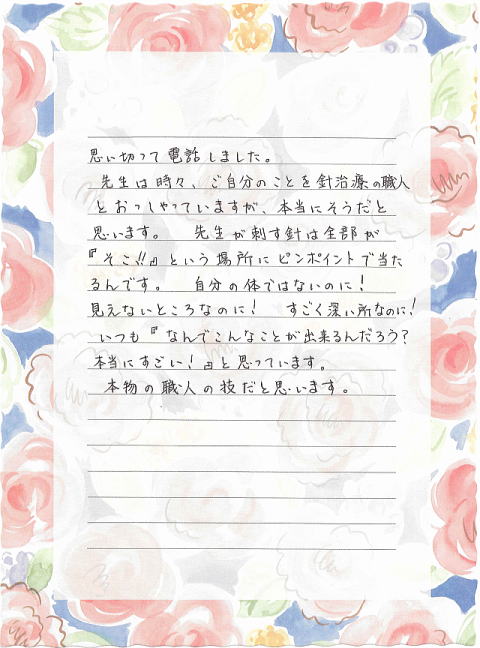 思い切って電話しました。
先生は時々、ご自分のことを針治療の職人
とおっしゃっていますが、本当にそうだと
思います。 先生が刺す針は全部が
『そこ!!』という場所にピンポイントで当た
るんです。 自分の体ではないのに!
見えないところなのに! すごく深い所なのに!
いつも『なんでこんなことが出来るんだろう?
本当にすごい!』と思っています。
本物の職人の技だと思います。